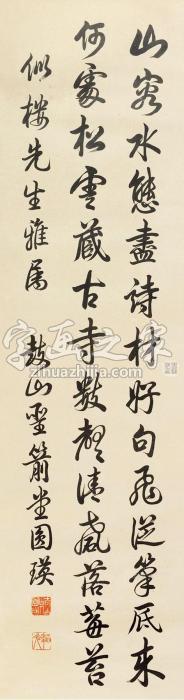 山容水態盡詩材好句飛從筆底來
何處松雲藏古寺數聲清磬落莓苔
似樓先生雅属 鼓山聖箭堂圓瑛
字画之家
zihuazhijia.com